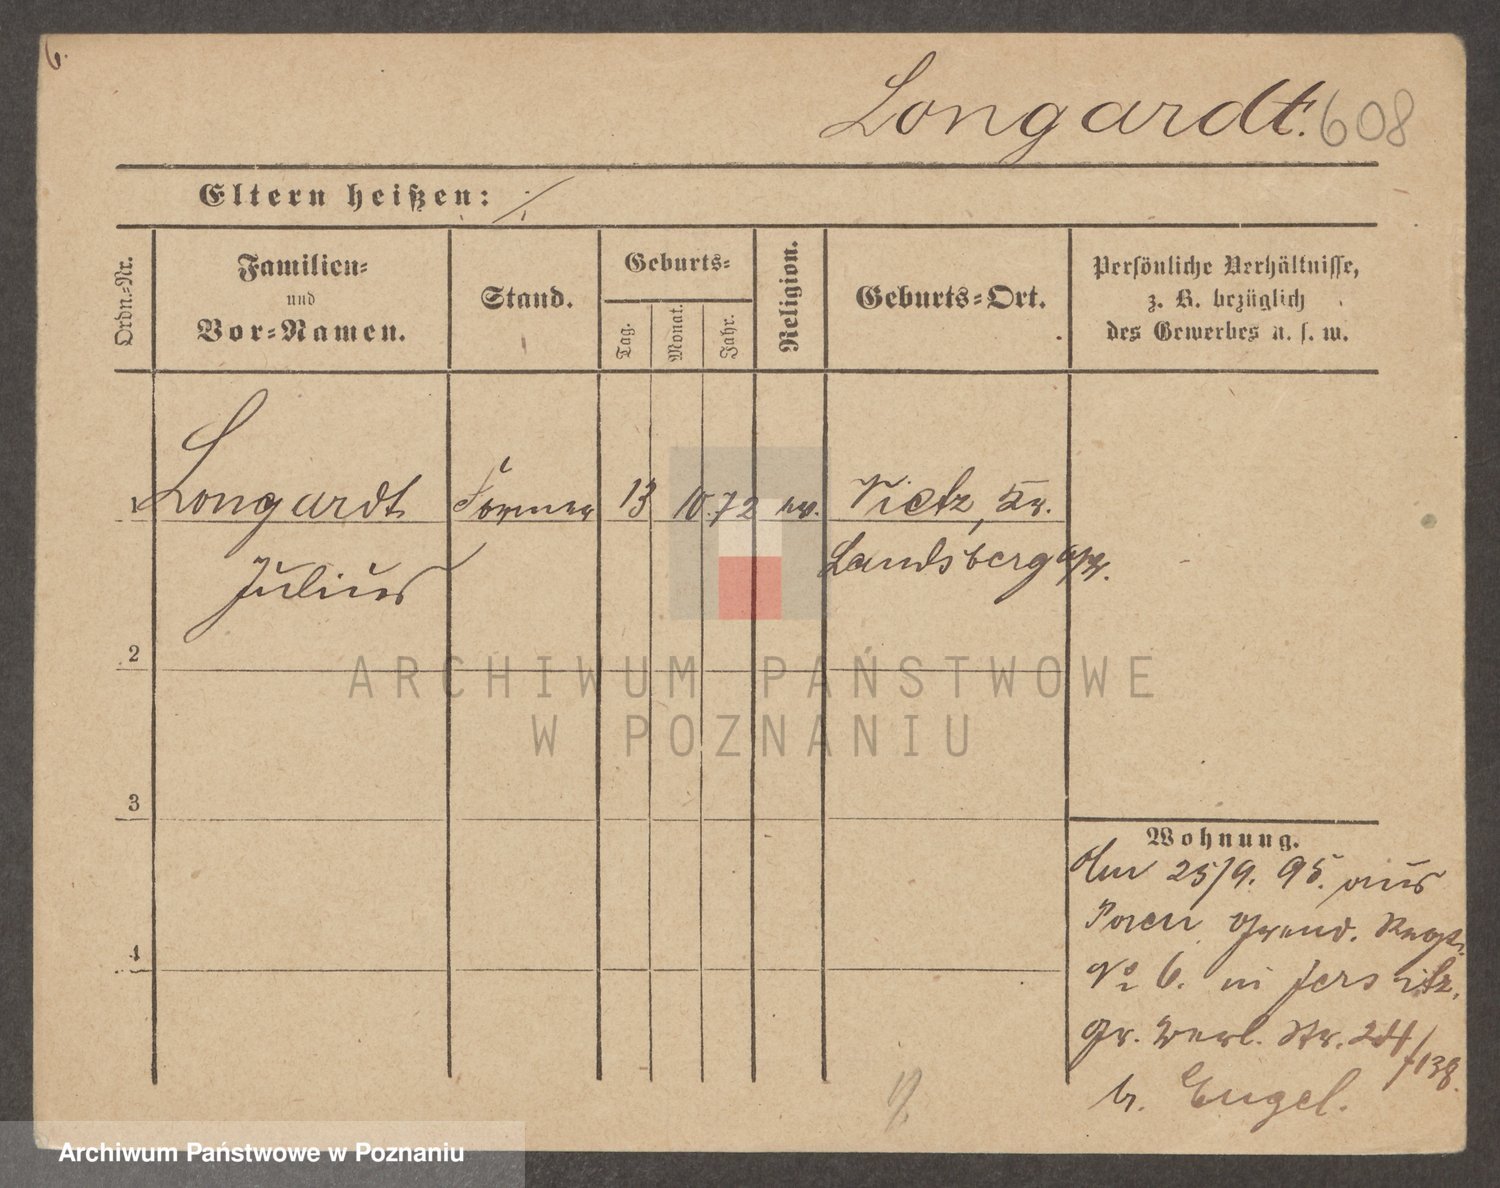 6.
Longardt. 608
Eltern heißen: ./.
Ordn.-Nr.
Familien-
und
Vor-Namen.
Stand.
Geburts-
Tag.
Monat.
Jahr.
Religion.
Geburts-Ort.
Persönliche Verhältnisse,
z. B. bezüglich
des Gewerbes u. s. w.
1 Longardt Former 13 10. 72 ev. Vietz, Kr.
Julius Landsberg a/W.
2
3
4
Wohnung.
Am 25/9. 95. aus
Posen Grend. Regt.
No 6. in Jersitz,
Gr. Berl. Str. 24/138.
b. Engel.
ARCHIWUM PAŃSTWOWE
W POZNANIU
Archiwum Państwowe w Poznaniu